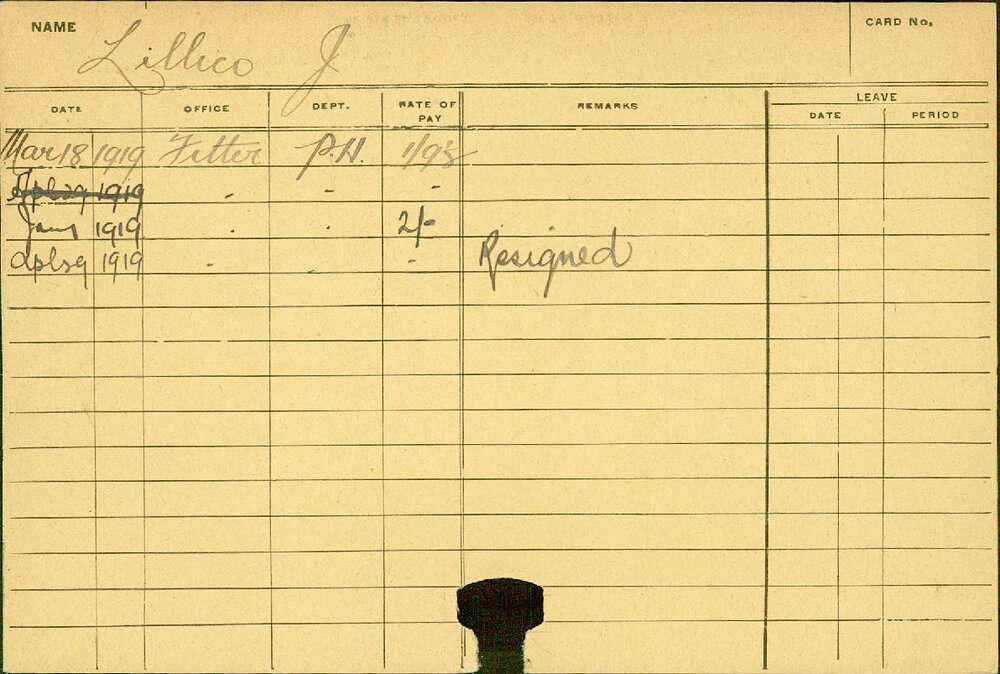 NAME Lillico J CARD No.
DATE OFFICE DEPT. RATE OF PAY REMARKS LEAVE
DATE PERIOD
Mar 18 1919 Fitter P.H.
1919 - - -
1919 - - 2/-
Apl 29 1919 - - - Resigned